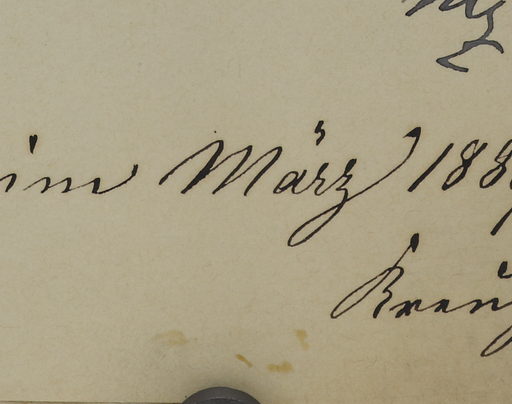 im März 188
Kreuz